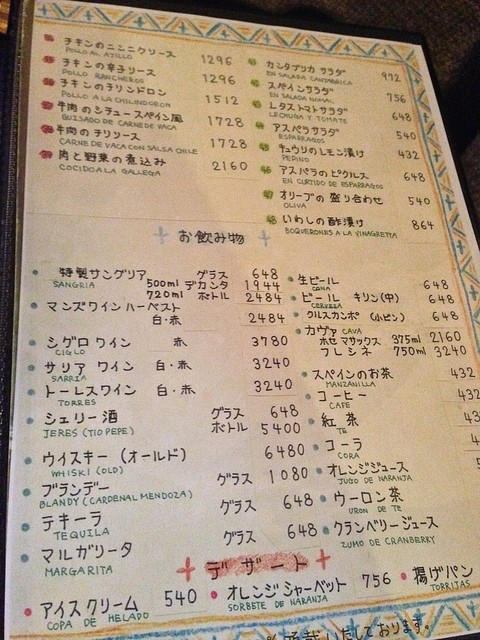 チキンのニンニクソース 1296
POLLO AL AJILLO
チキンの辛子リース 1296
POLLO RANCHEROS
チキンのチリンドロン 1512
POLLO A LA CHILINDORON
牛肉のシチュースペイン風 1728
GUISADO DE CARNE DE VACA
牛肉のチリソース 1728
CARNE DE VACA CON SALSA CHILE
肉と野菜の煮込み 2160
COCIDO A LA GALLEGA
カンタブリカ サラダ 972
EN SALADA CANTABRICA
スペインサラダ 756
EN SALADA NOMAL
レタストマトサラダ 648
LECHUGA Y TOMATE
アスペラサラダ 540
ESPARRAGOS
キュウリのレモン漬け 432
PEPINO
46 アスパラのピクルス 648
EN CURTIDO DE ESPARRAGOS
47 オリーブの盛り合わせ 540
OLIVA
48 いわしの酢漬け 864
BOQUERONES A LA VINAGRETTA
お飲み物
特製サングリア グラス 648
SANGRIA 500ml デカンタ 1944
720ml ボトル 2484
マンズワインハーベスト
白・赤 2484
シグロワイン 赤 3780
CIGLO
サリア ワイン 白・赤 3240
SARRIA
トーレスワイン 白・赤 3240
TORRES
シェリー酒 グラス 648
JERES (TIO PEPE) ボトル 5400
ウイスキー (オールド) 6480
WHISKI (OLD)
ブランデー グラス 1080
BLANDY (CARDENAL MENDOZA)
テキーラ グラス 648
TEQUILA
マルガリータ グラス 648
MARGARITA
生ビール 648
CANA
ビール キリン(中) 648
CERVEZA
クルスカンポ (小ビン) 648
カヴァ CAVA
ホセ マサックス 375ml 2160
フレシネ 750ml 3240
スペインのお茶 432
MANZANILLA
コーヒー 432
CAFE
紅茶 432
TE
コーラ
CORA
オレンジジュース
JUGO DE NARANJA
ウーロン茶
URON DE TE
クランベリージュース
ZUMO DE CRANBERRY
デザート
アイスクリーム 540
COPA DE HELADO
オレンジシャーベット 756
SORBETE DE NARANJA
揚げパン
TORRIJAS
頂戴いたしております。